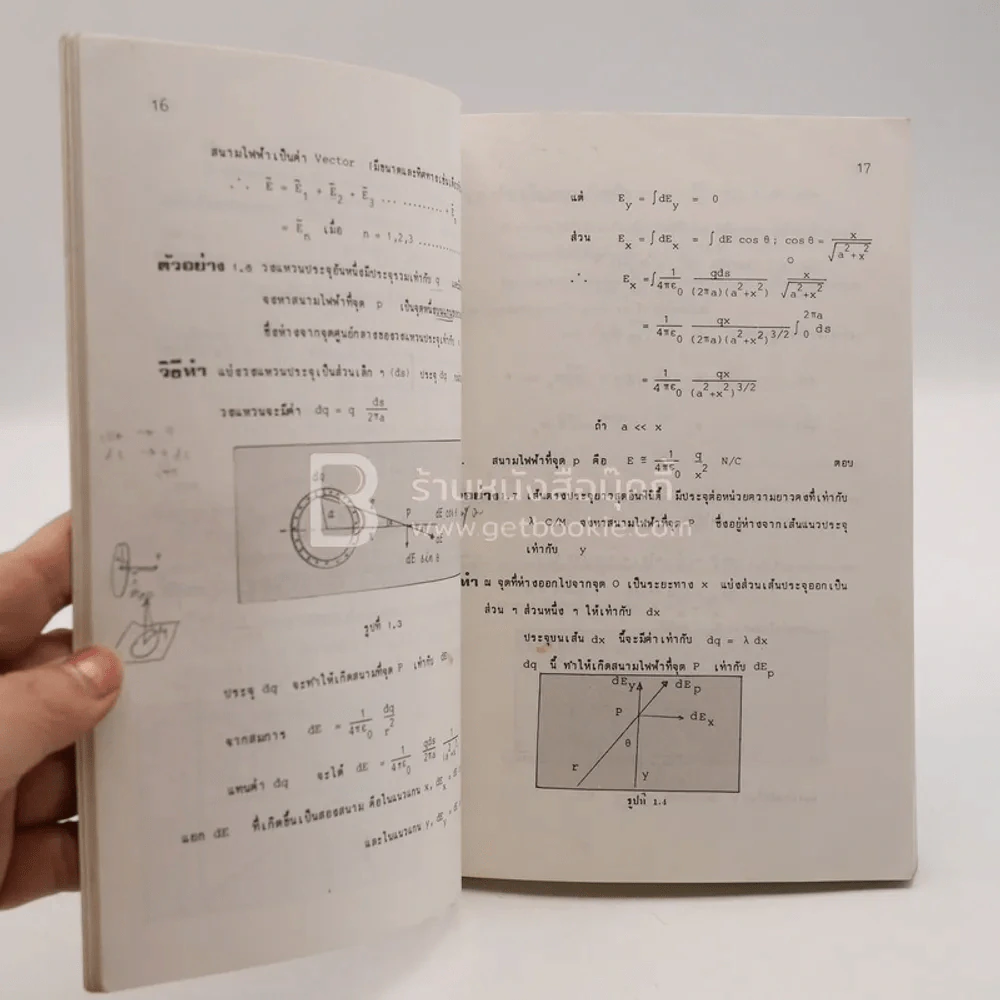 16
สนามไฟฟ้าเป็นค่า Vector (มีขนาดและทิศทาง
∴ Ē = Ē₁ + Ē₂ + Ē₃ ... ........ +
= Ēₙ เมื่อ n = 1,2,3 ..........
ตัวอย่าง 1.6 วงแหวนประจุอันหนึ่งมีประจุรวมเท่ากับ q
จงหาสนามไฟฟ้าที่จุด P เป็นจุดหนึ่ง
ซึ่งห่างจากจุดศูนย์กลางของวงแหวนประจุเท่ากับ
วิธีทำ แบ่งวงแหวนประจุเป็นส่วนเล็ก ๆ (ds) ประจุ dq
วงแหวนจะมีค่า dq = q ds/2πa
dq
a
P
dE cos θ
dE sin θ
รูปที่ 1.3
ประจุ dq จะทำให้เกิดสนามที่จุด P เท่ากับ dE
จากสมการ dE = 1/4πε₀ dq/r²
แทนค่า dq จะได้ dE = 1/4πε₀ qds/2πa
แยก dE ที่เกิดขึ้นเป็นสองสนาม คือในแนวแกน x, dEₓ =
และในแนวแกน y, dE_y
17
แต่ E_y = ∫dE_y = 0
ส่วน Eₓ = ∫dEₓ = ∫dE cos θ ; cos θ = x/√(a²+x²)
∴ Eₓ = ∫ 1/4πε₀ qds/(2πa)(a²+x²) x/√(a²+x²)
= 1/4πε₀ qx/(2πa)(a²+x²)^3/2 ∫₀^2πa ds
= 1/4πε₀ qx/(a²+x²)^3/2
ถ้า a << x
สนามไฟฟ้าที่จุด p คือ E ≅ 1/4πε₀ q/x² N/C ตอบ
มีประจุต่อหน่วยความยาวคงที่เท่ากับ
λ C/M จงหาสนามไฟฟ้าที่จุด P ซึ่งอยู่ห่างจากเส้นแนวประจุ
เท่ากับ y
ทำ ณ จุดที่ห่างออกไปจากจุด O เป็นระยะทาง x แบ่งส่วนเส้นประจุออกเป็น
ส่วน ๆ ส่วนหนึ่ง ๆ ให้เท่ากับ dx
ประจุบนเส้น dx นี้จะมีค่าเท่ากับ dq = λ dx
dq นี้ ทำให้เกิดสนามไฟฟ้าที่จุด P เท่ากับ dE_p
dE_y dE_p
P dEₓ
θ
r y
รูปที่ 1.4
B
ร้านหนังสือบุ๊คกี้
www.getbookie.com